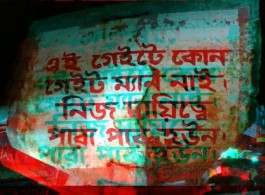 এই গেইটে কোন
গেইট ম্যান নাই।
নিজ দায়িত্বে
পারা পার হউন।
পারা পার হউন।